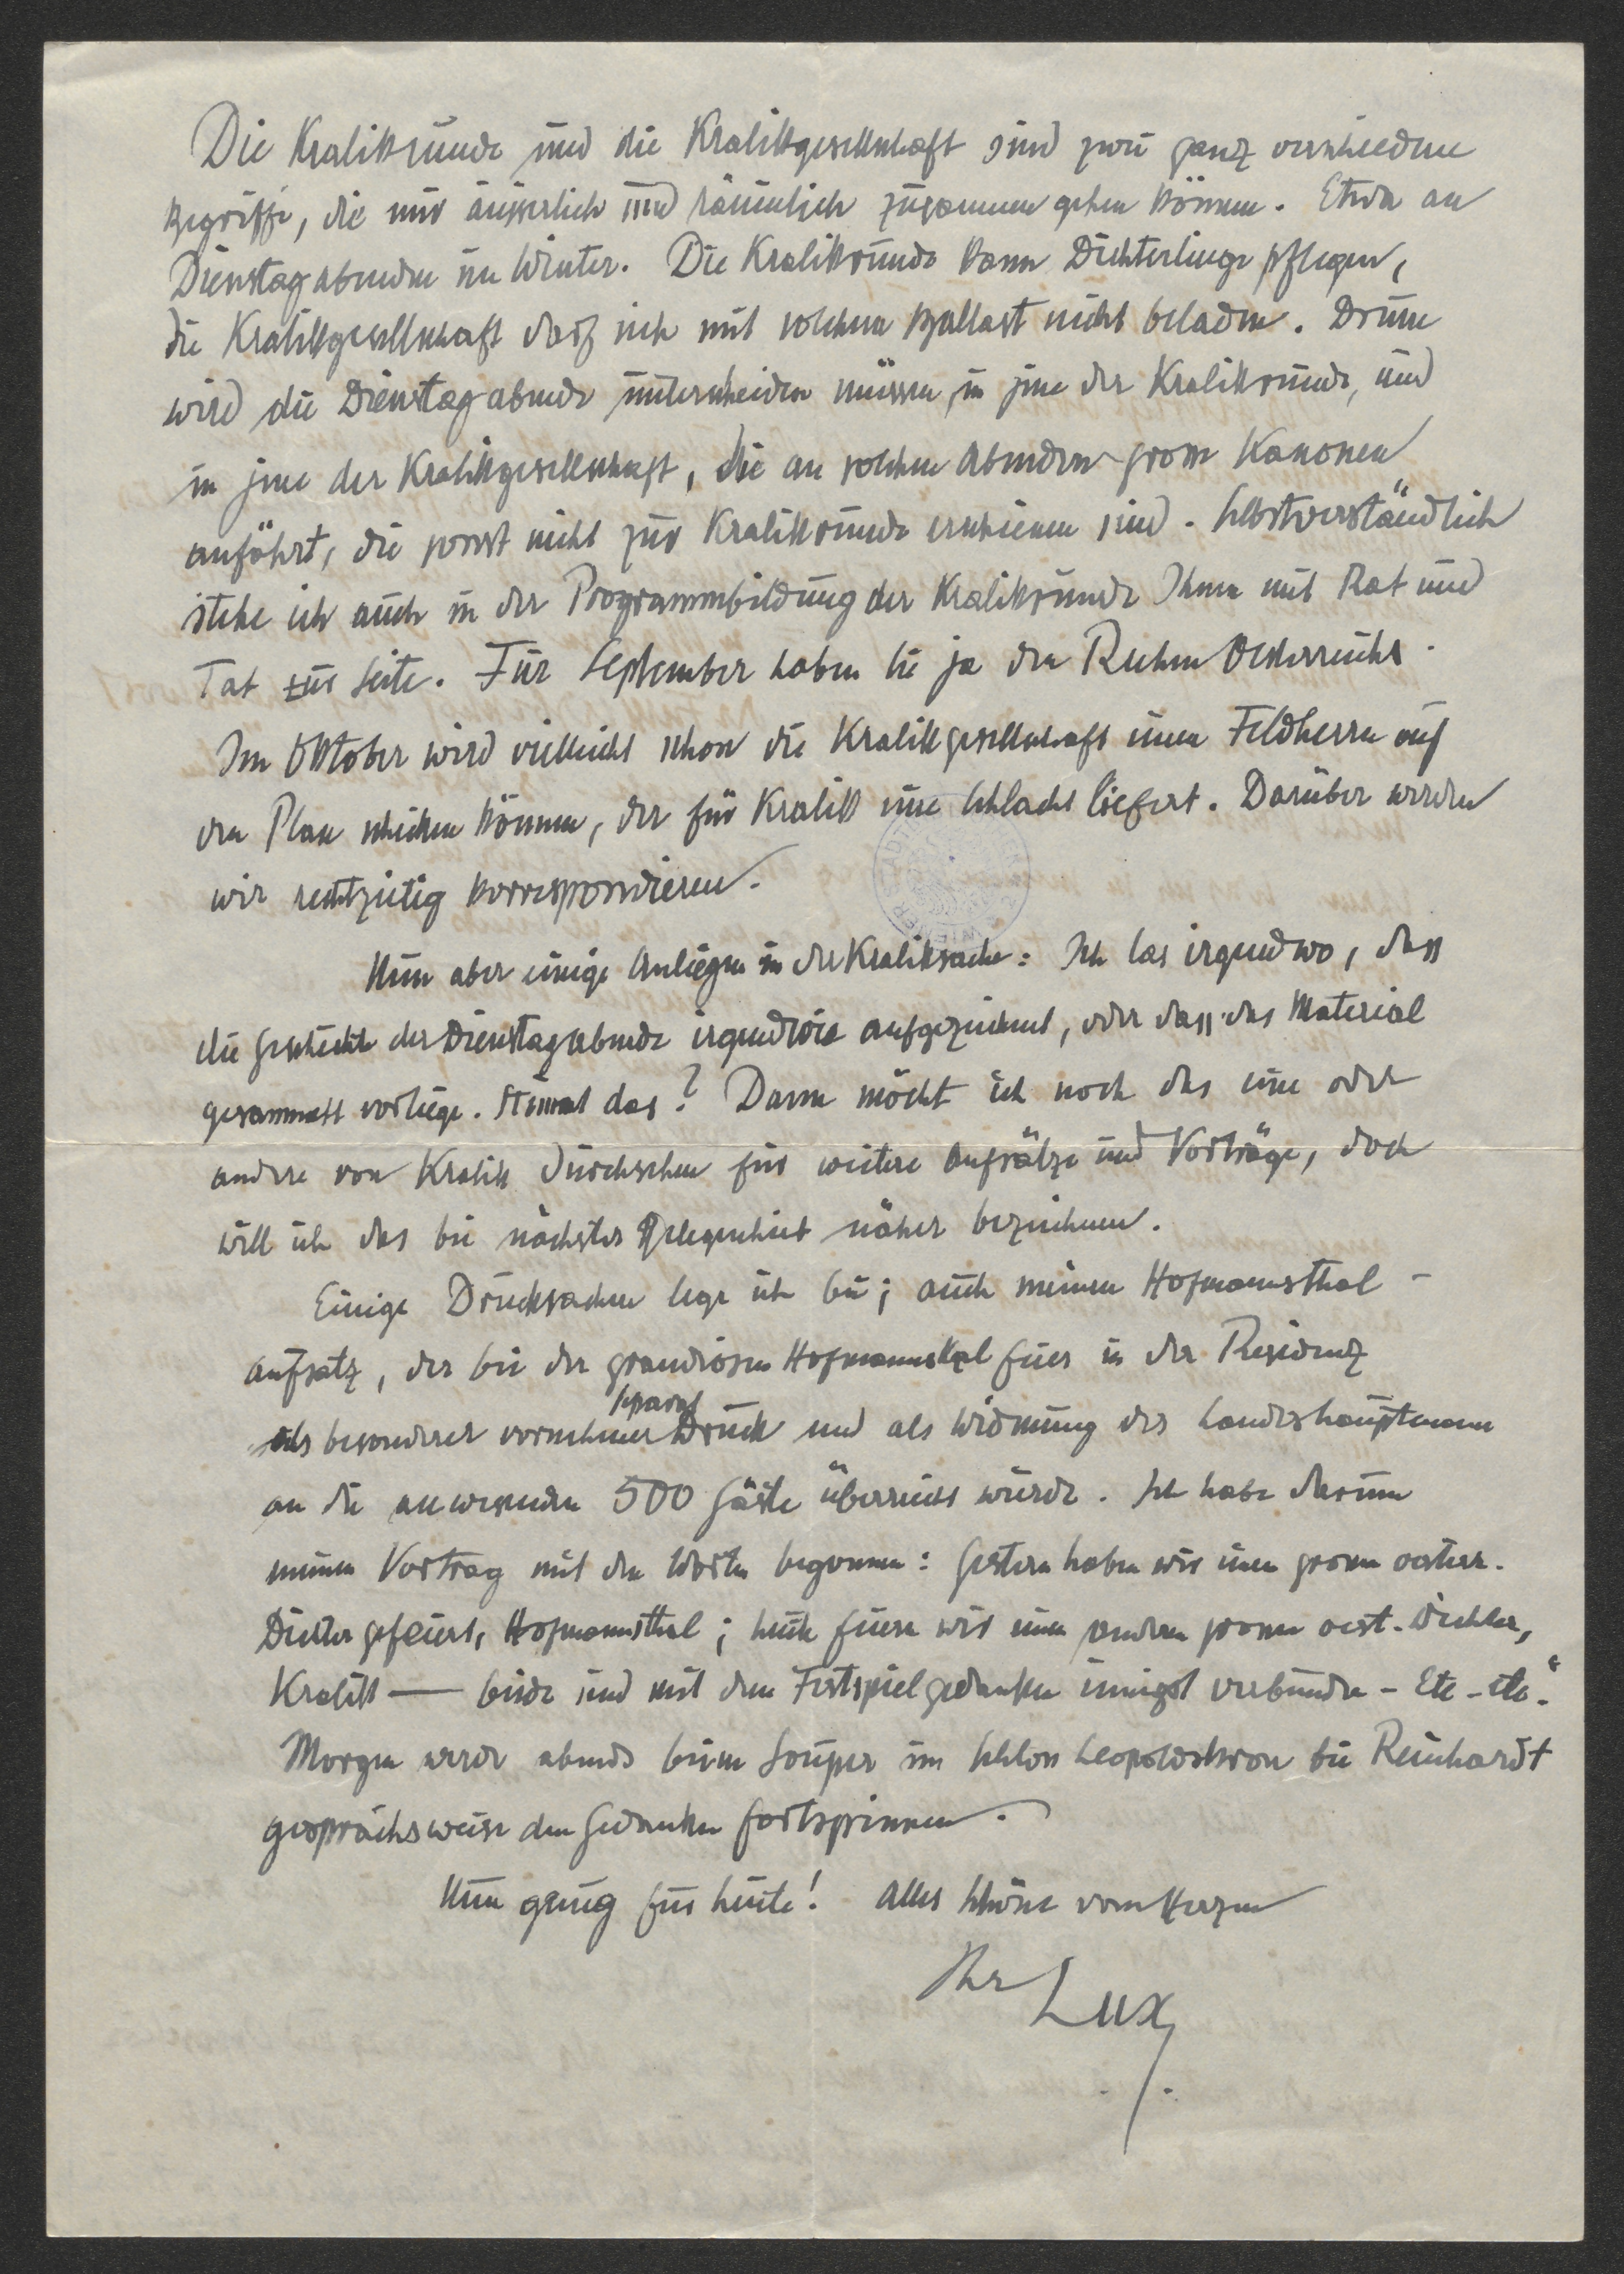 Die Kralikrunde und die Kralikgesellschaft sind zwei ganz verschiedene
Begriffe, die nur äusserlich und räumlich zusammen gehen können. Etwa an
Dienstagabenden im Winter. Die Kralikrunde kann Dichterlinge pflegen,
die Kralikgesellschaft darf sich mit solchem Ballast nicht beladen. Drum
wird die Dienstagabende unterscheiden müssen, in jene der Kralikrunde, und
in jene der Kralikgesellschaft, die an solchen Abenden grosse Kanonen
anführt, die sonst nicht zur Kralikrunde erschienen sind. Selbstverständlich
stehe ich auch in der Programmbildung der Kralikrunde Ihnen mit Rat und
Tat zur Seite. Für September haben Sie ja den Ruhm Oesterreichs.
Im Oktober wird vielleicht schon die Kralikgesellschaft einen Feldherrn auf
den Plan schicken können, der für Kralik eine Schlacht liefert. Darüber werden
wir rechtzeitig korrespondieren.
Nun aber einige Anliegen in der Kraliksache: Ich las irgendwo, dass
die Geschichte der Dienstagabende irgendwie aufgezeichnet, oder dass das Material
gesammelt vorliege. Stimmt das? Dann möcht ich noch das eine oder
andere von Kralik durchsehen für weitere Aufsätze und Vorträge, doch
will ich das bei nächster Gelegenheit näher bezeichnen.
Einige Drucksachen lege ich bei; auch meinen Hofmannsthal-
Aufsatz, der bei der grandiosen Hofmannsthal feier in der Residenz
als besonderer vornehmer Separat Druck und als Widmung des Landeshauptmann
an die anwesenden 500 Gäste überreicht wurde. Ich habe darum
meinen Vortrag mit den Worten begonnen: Gestern haben wir einen grossen oesterr.
Dichter gefeiert, Hofmannsthal; heute feiern wir einen anderen grossen oest. Dichter,
Kralik — beide sind mit dem Festspielgedanken innigst verbunden - Etc - etc."
Morgen werde abends beim Souper im Schloss Leopoldskron bei Reinhardt
gesprächsweise den Gedanken fortspinnen.
Nun genug für heute! Alles Schöne vom Herzen
Ihr Lux